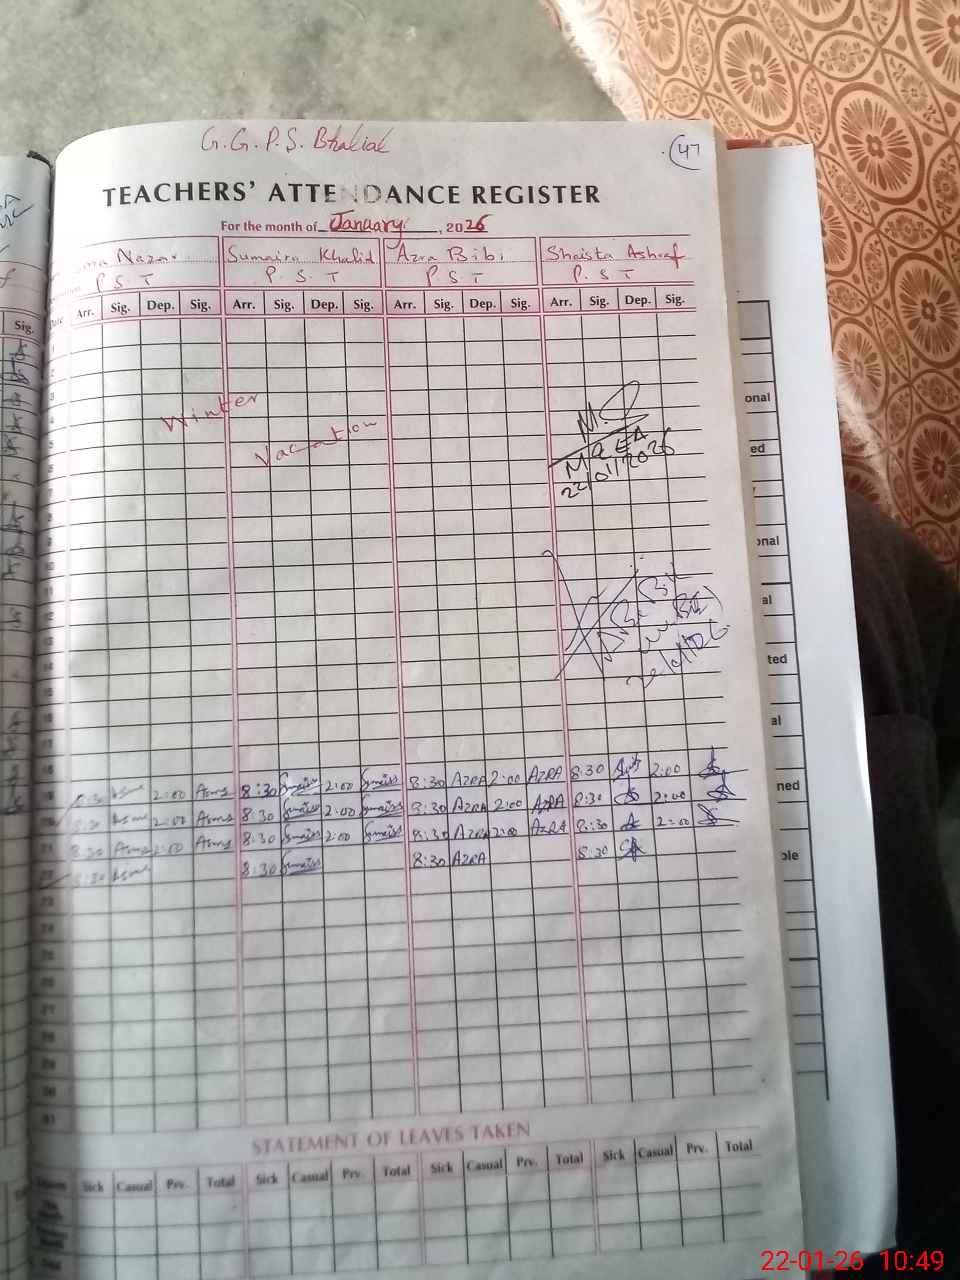 G.G.P.S. Bhalial
47
TEACHERS' ATTENDANCE REGISTER
For the month of January, 2026
Nazar Sumaira Khalid Azra Bibi Shaista Ashraf
P.S.T P.S.T P.S.T P.S.T
Sig. Arr. Sig. Dep. Sig. Arr. Sig. Dep. Sig. Arr. Sig. Dep. Sig. Arr. Sig. Dep. Sig.
Winter
Vacation
MEA
22/01/2026
onal
ed
onal
al
ted
al
ned
ble
8:30 2:00 Asma 8:30 Sumaira 2:00 Sumaira 8:30 AZRA 2:00 AZRA 8:30 2:00
8:30 Asma 2:00 Asma 8:30 Sumaira 2:00 Sumaira 8:30 AZRA 2:00 AZRA 8:30 2:00
8:30 Asma 2:00 Asma 8:30 Sumaira 2:00 Sumaira 8:30 AZRA 2:00 AZRA 8:30 2:00
8:30 Asma 8:30 Sumaira 8:30 AZRA 8:30
23
24
25
26
27
28
29
30
31
STATEMENT OF LEAVES TAKEN
Sick Casual Prv. Total Sick Casual Prv. Total Sick Casual Prv. Total Sick Casual Prv. Total
22-01-26 10:49